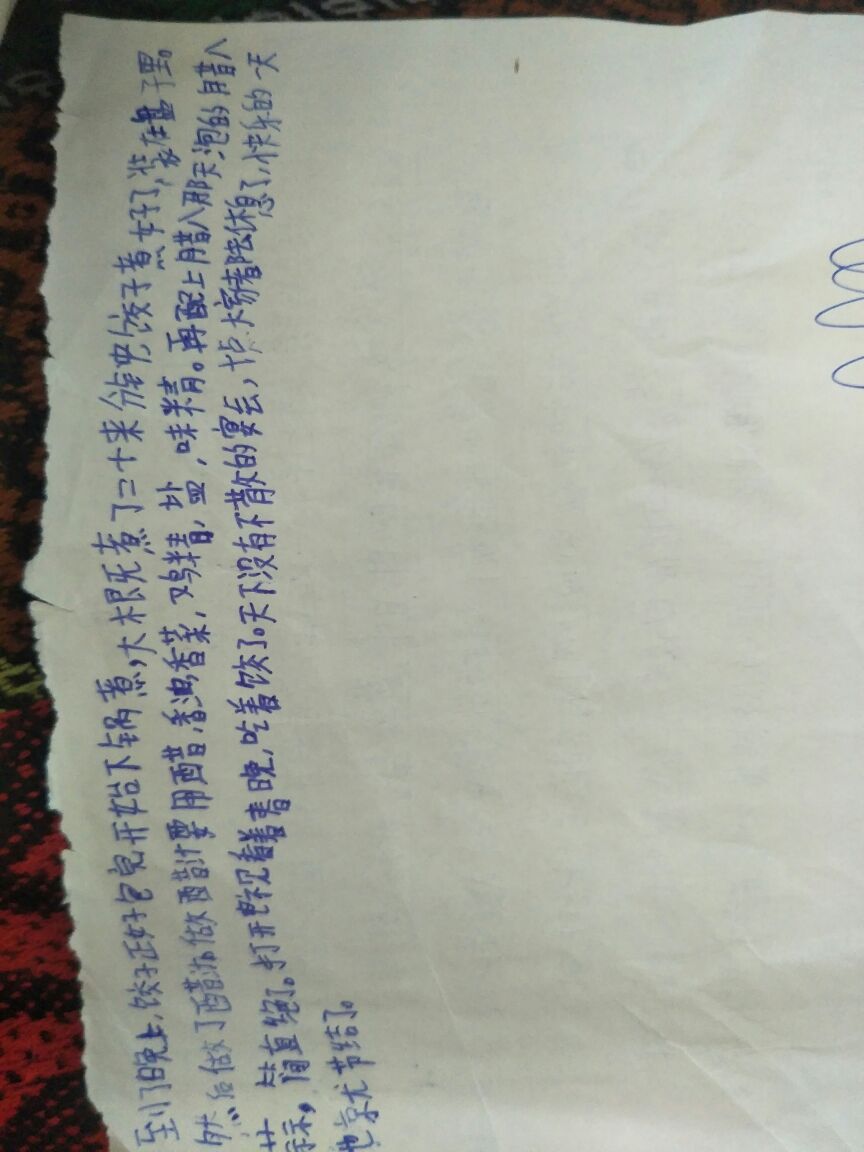 到了晚上,饺子正好包完开始下锅煮,大概煮了二十来分钟饺子煮好了,装在盘子里。
然后做了醋汁做醋汁要用醋,香油,香菜,鸡精,盐,味精。再配上腊八那天泡的腊八
蒜,简直绝了。打开电视看着春晚,吃着饺了。天下没有不散的宴会,大家都去休息了,快乐的一天
也京尤节结了。